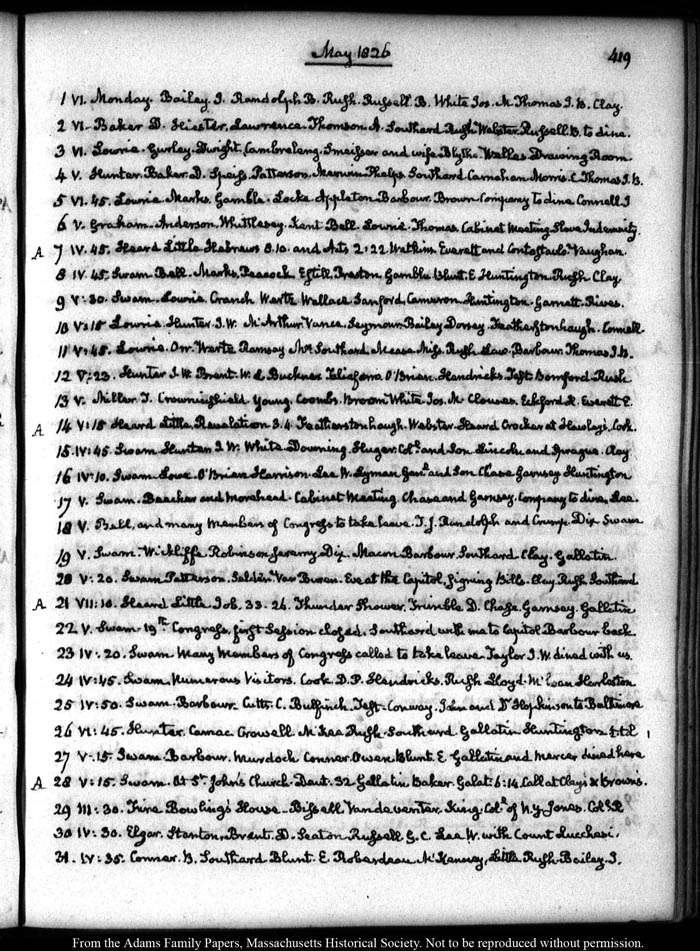 May 1826
419
1 VI. Monday. Bailey. J. Randolph. B. Rush. Russell. B. White Jos. M. Thomas J. B. Clay.
2 VI. Baker D. Hiester. Lawrence. Thomson A. Southard Rush Webster. Russell B. to dine.
3 VI. Lowrie. Gurley. Dwight. Cambreleng. and wife. Blythe. Walles Drawing Room.
4 V. Hunter. Baker. D. Speiss. Patterson. Merwin Phelps Southard Carnahan Morris. C. Thomas J. B.
5 VI. 45. Lowrie. Marks. Gamble. Locke Appleton Barbour. Brown Company to dine Connell J
6 V. Graham. Anderson. Whittlesey. Kent Bell. Lowrie. Thomas. Cabinet Meeting Slave Indemnity.
A 7 IV. 45. Heard Little Hebrews 8. 10. and Acts 2:22 Watkins Everett and Vaughan.
8 IV. 45. Swam. Ball. Marks. Peacock. Estill. Preston. Gamble Blunt. E Huntington. Rush Clay
9 V:30. Swam. Lowrie. Cranch Wirt Wallace Sanford. Cameron. Huntington. Garnett. Rives.
10 V:15 Lowrie. Hunter. J. W. McArthur. Vance. Seymour. Bailey Dorsey. Featherstonhaugh. Connell
11 V:45. Lowrie. Orr. Ramsay Mr. Southard. Mease. Miss. Rush Law. Barbour. Thomas J. B.
12 V:23. Hunter J. W. Brent. W. L Buckner Taliaferro O'Brian. Hendricks. Taft Bomford Rush
13 V. Miller. J. Crowninshield Young. Coombs. Broom White. Jos. M. Eckford H. Everett E.
A 14 V:15 Heard Little. Revelation 3. 4. Featherstonhaugh. Webster. Heard Crocker at Hawley's. Cook.
15. IV:45. Swam Hunter J. W. White Downing Huger Colo. and Son Lincoln and Sprague. Clay
16 IV:10. Swam. Love. O'Brian Harrison. Lee W. Lyman. Genl. and Son Chase Garnsey Huntington
17 V. Swam. Beecher and Morehead. Cabinet Meeting. Chase and Garnsey. Company to dine. Lee.
18 V. Ball, and many Members of Congress to take leave. T. J. Randolph and Crump. Dix Swam
19 V. Swam. Wickliffe. Robinson Jeremy Dix. Macon Barbour. Southard Clay. Gallatin.
20 V:20. Swam Patterson. Selden. Van Buren. Eve at the Capitol, signing Bills. Clay. Rush Southard
A 21 VII:10. Heard Little Job. 33. 26. Thunder Shower. Trimble D. Chase. Garnsey. Gallatin
22 V. Swam. 19th. Congress, first Session closed. Southard with me to Capitol Barbour back.
23 IV:20. Swam. Many Members of Congress called to take leave. Taylor J. W. dined with us.
24 IV:45. Swam. Numerous Visitors. Cook. D. P. Hendricks. Rush Lloyd. McLean
25 IV:50. Swam. Barbour. Cutts C. Bulfinch. Taft. Conway. John and Dr. Hopkinson to Baltimore
26 VI:45. Hunter. Camac. Crowell. McKee Rush. Southard. Gallatin. Huntington
27 V.15. Swam Barbour. Murdock Conner. Owen. Blunt. E. Gallatin and Mercer dined here
A 28 V:15. Swam. At St. John's Church. Deut. 32 Gallatin. Baker. Galat. 6:14. Call at Clay's & Brown's.
29 III:30. Fire Bowling's House. Bissell Vandeventer. King. Colo. of N.Y. Jones.
30 IV:30. Elgar. Stanton. Brent. D. Seaton Russell G. C. Lee W. with Count Lucchesi.
31. IV:35. Conner. B. Southard Blunt. E Roberdeau McKenney, Little. Rush. Bailey. J.
From the Adams Family Papers, Massachusetts Historical Society. Not to be reproduced without permission.